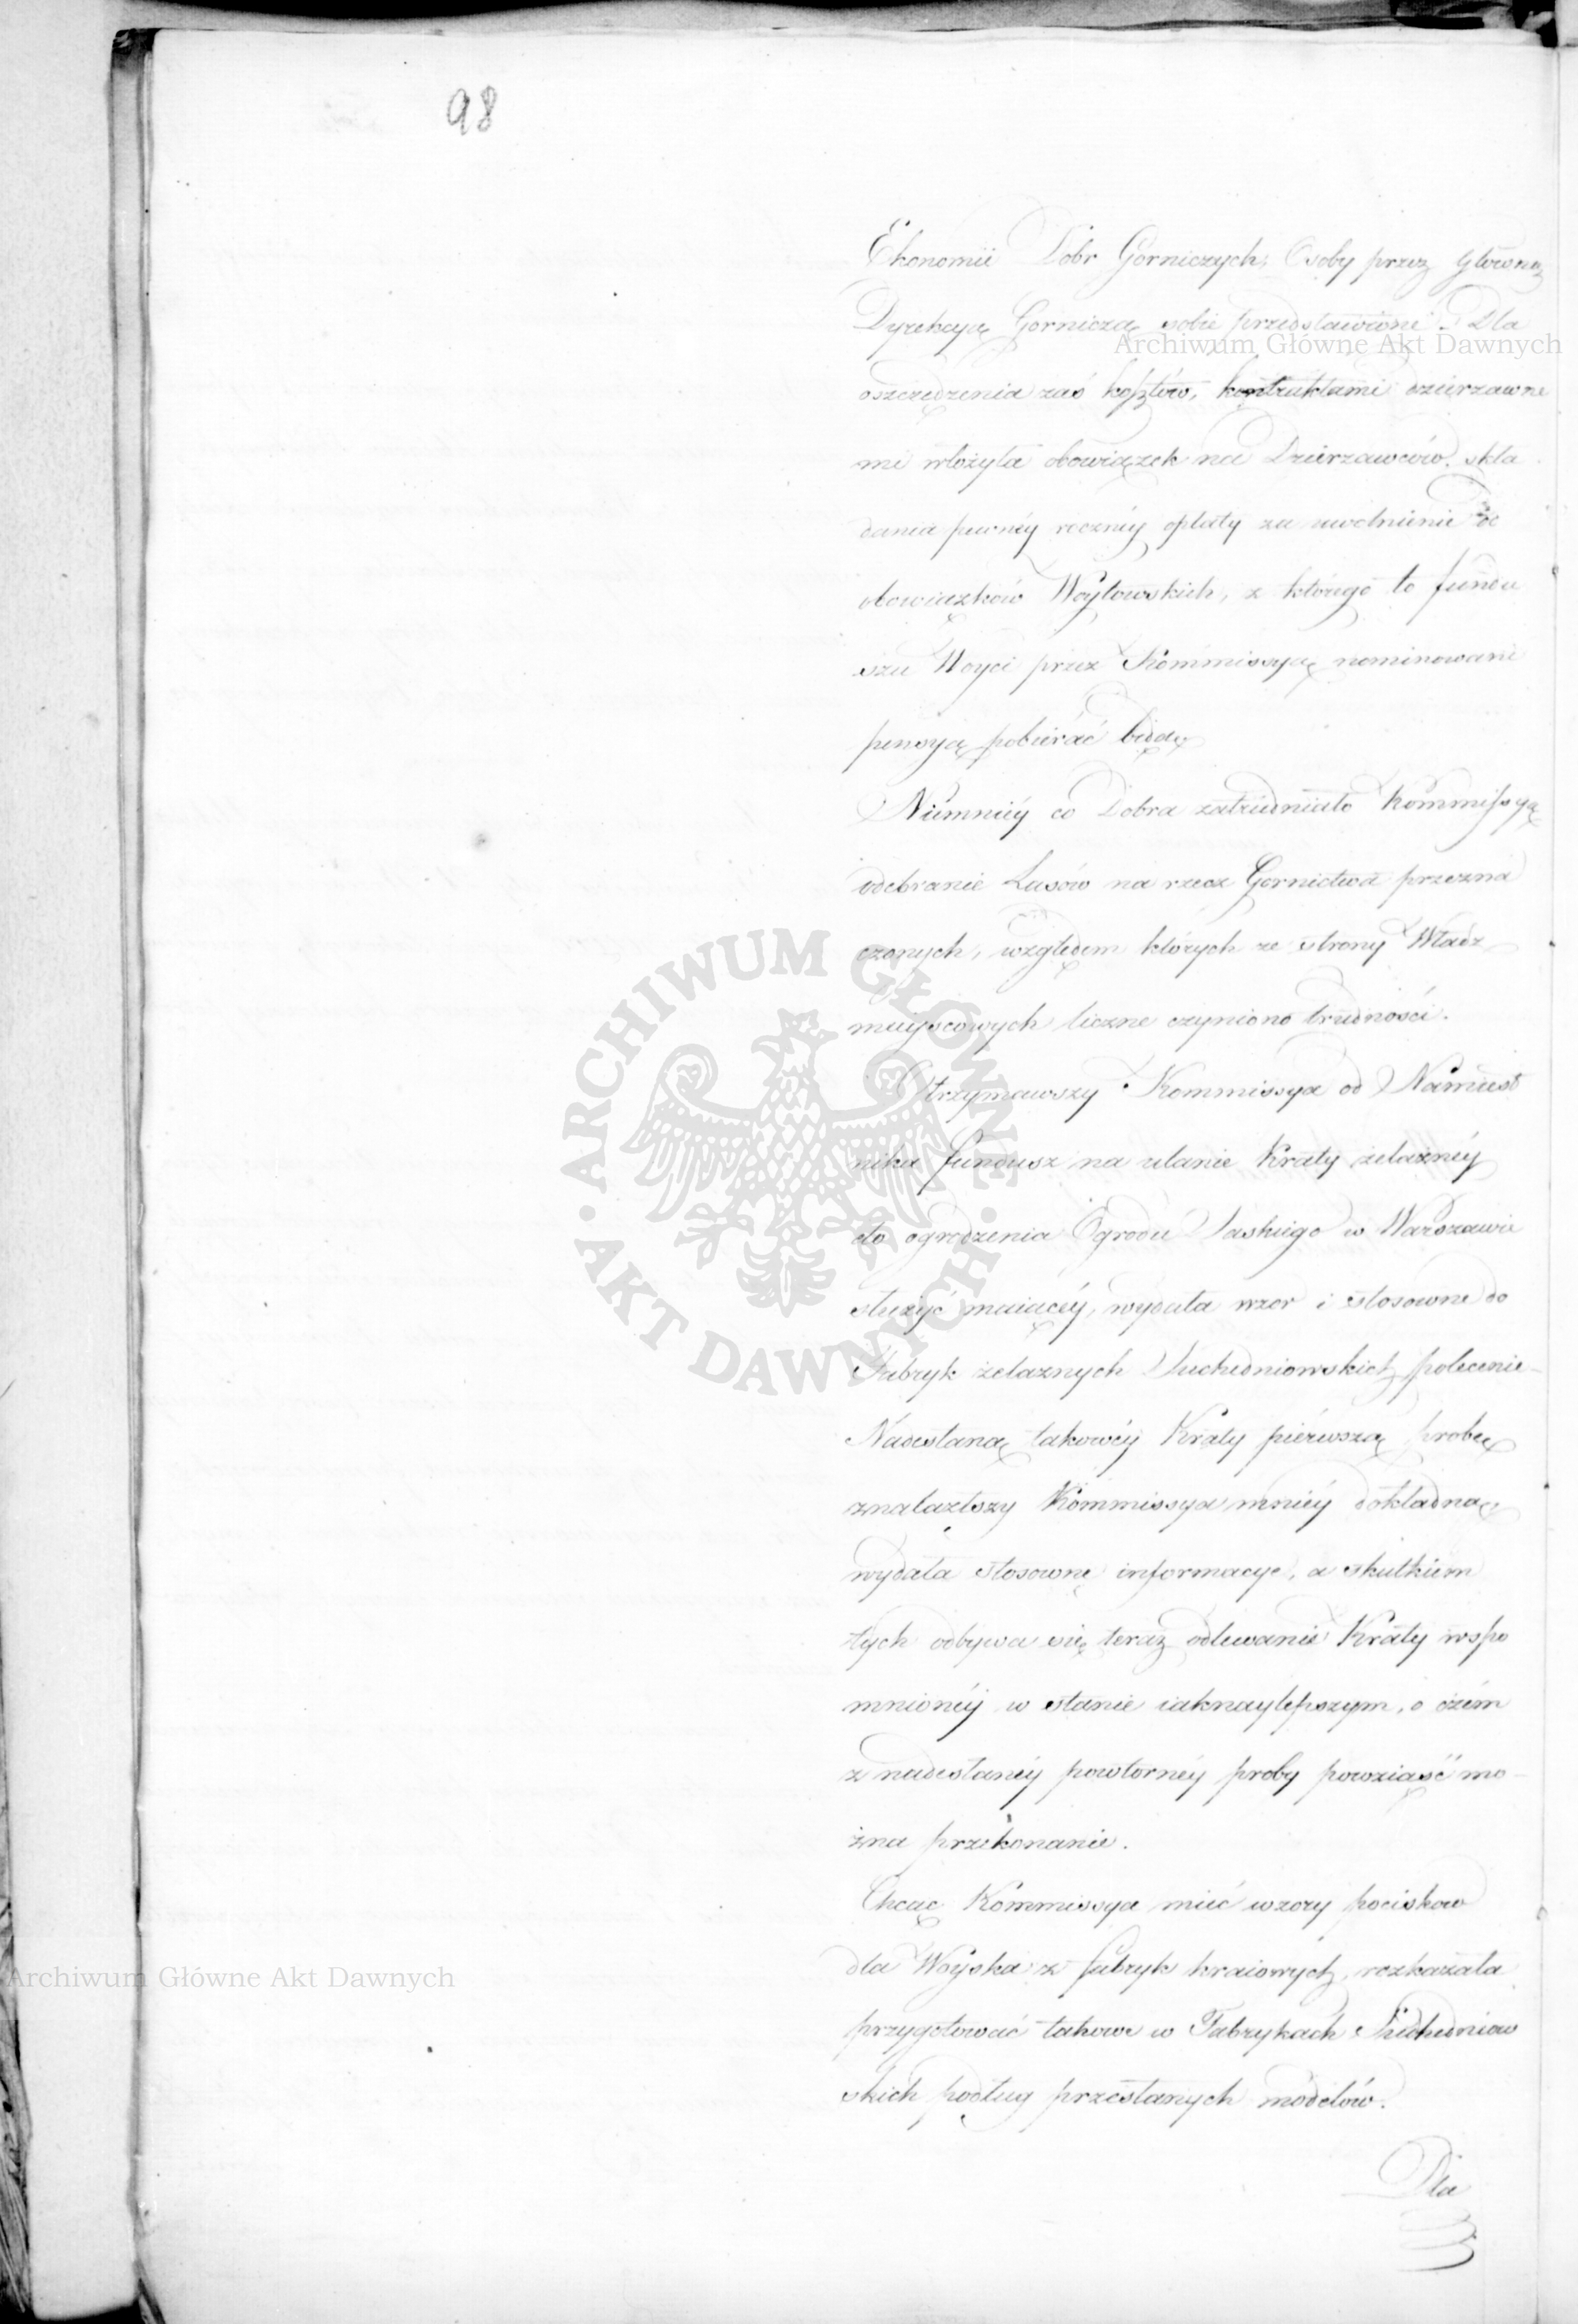 98
Ekonomii Dobr Gorniczych, Osoby przez Główną
Dyrekcyą Gorniczą sobie przedstawione. Dla
oszczędzenia zaś kosztów, kontraktami dzierzawne
mi włożyła obowiązek na Dzierzawców, skła
dania pewnéy rocznéy opłaty za uwolnienie od
obowiązków Woytowskich, z którego to fundu
szu Woyci przez Kommissyą nominowani
pensyą pobierać będą.
Niemniéy co Dobra zatrudniało Kommissyą
odebranie Lasów na rzecz Gornictwa przezna
czonych, względem których ze strony Władz
mieyscowych liczne czyniono trudności.
Otrzymawszy Kommissya od Namiest
nika fundusz na ulanie Kraty żelaznéy
do ogrodzenia Ogrodu Saskiego w Warszawie
służyć maiącéy, wydała wzor i stosowne do
Fabryk żelaznych Suchedniowskich polecenie
Nadesłaną takowéy Kraty piérwszą probę
znalazłszy Kommissya mniéy dokładną,
wydała stosowne informacye, a skutkiem
tych odbywa się teraz odlewanie Kraty wspo
mnionéy w stanie iaknaylepszym, o czém
z nadesłanéy powtornéy proby powziąść mo-
żna przekonanie.
Chcąc Kommissya mieć wzory pociskow
dla Woyska z fabryk kraiowych, rozkazała
przygotować takowe w Fabrykach Suchedniow
skich podług przesłanych modelów.
Dla
Archiwum Główne Akt Dawnych
Archiwum Główne Akt Dawnych
ARCHIWUM GŁÓWNE AKT DAWNYCH